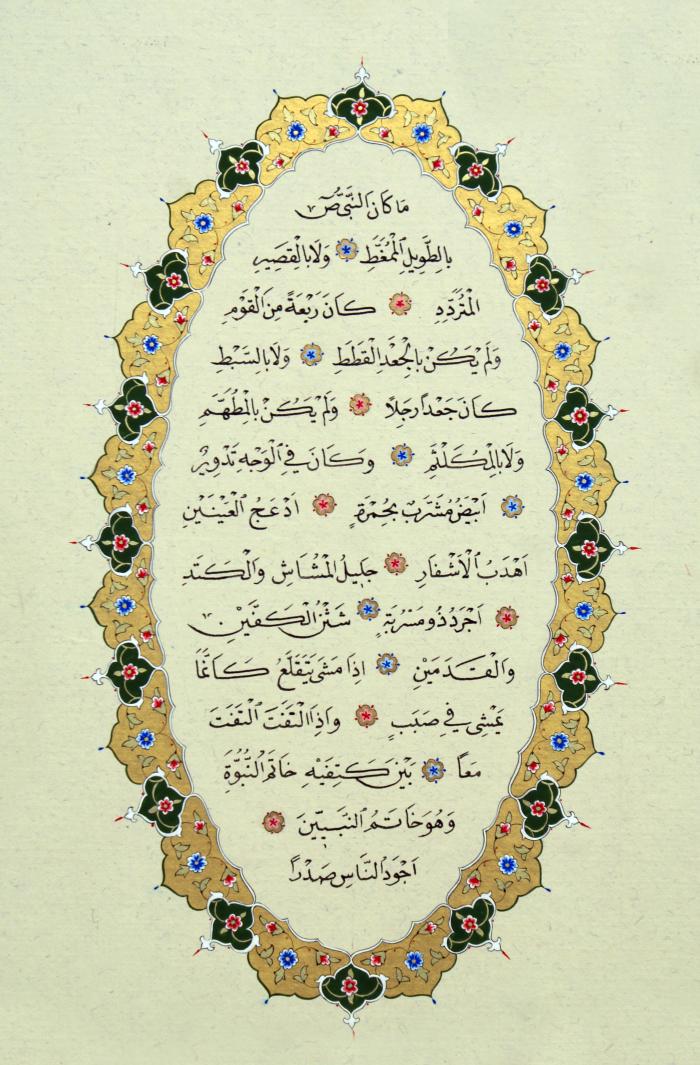 مَا كَانَ النَّبِيُّ ص
بِالطَّوِيلِ الْمُمَّغَطِ وَلَا بِالْقَصِيرِ
الْمُتَرَدِّدِ كَانَ رَبْعَةً مِنَ الْقَوْمِ
وَلَمْ يَكُنْ بِالْجَعْدِ الْقَطَطِ وَلَا بِالسَّبْطِ
كَانَ جَعْدًا رَجِلًا وَلَمْ يَكُنْ بِالْمُطَهَّمِ
وَلَا بِالْمُكَلْثَمِ وَكَانَ فِي الْوَجْهِ تَدْوِيرٌ
اَبْيَضُ مُشْرَبٌ بِحُمْرَةٍ اَدْعَجُ الْعَيْنَيْنِ
اَهْدَبُ الْاَشْفَارِ جَلِيلُ الْمُشَاشِ وَالْكَتَدِ
اَجْرَدُ ذُو مَسْرُبَةٍ شَثْنُ الْكَفَّيْنِ
وَالْقَدَمَيْنِ اِذَا مَشَى يَتَقَلَّعُ كَاَنَّمَا
يَمْشِي فِي صَبَبٍ وَاِذَا الْتَفَتَ الْتَفَتَ
مَعًا بَيْنَ كَتِفَيْهِ خَاتَمُ النُّبُوَّةِ
وَهُوَ خَاتَمُ النَّبِيِّينَ
اَجْوَدُ النَّاسِ صَدْرًا